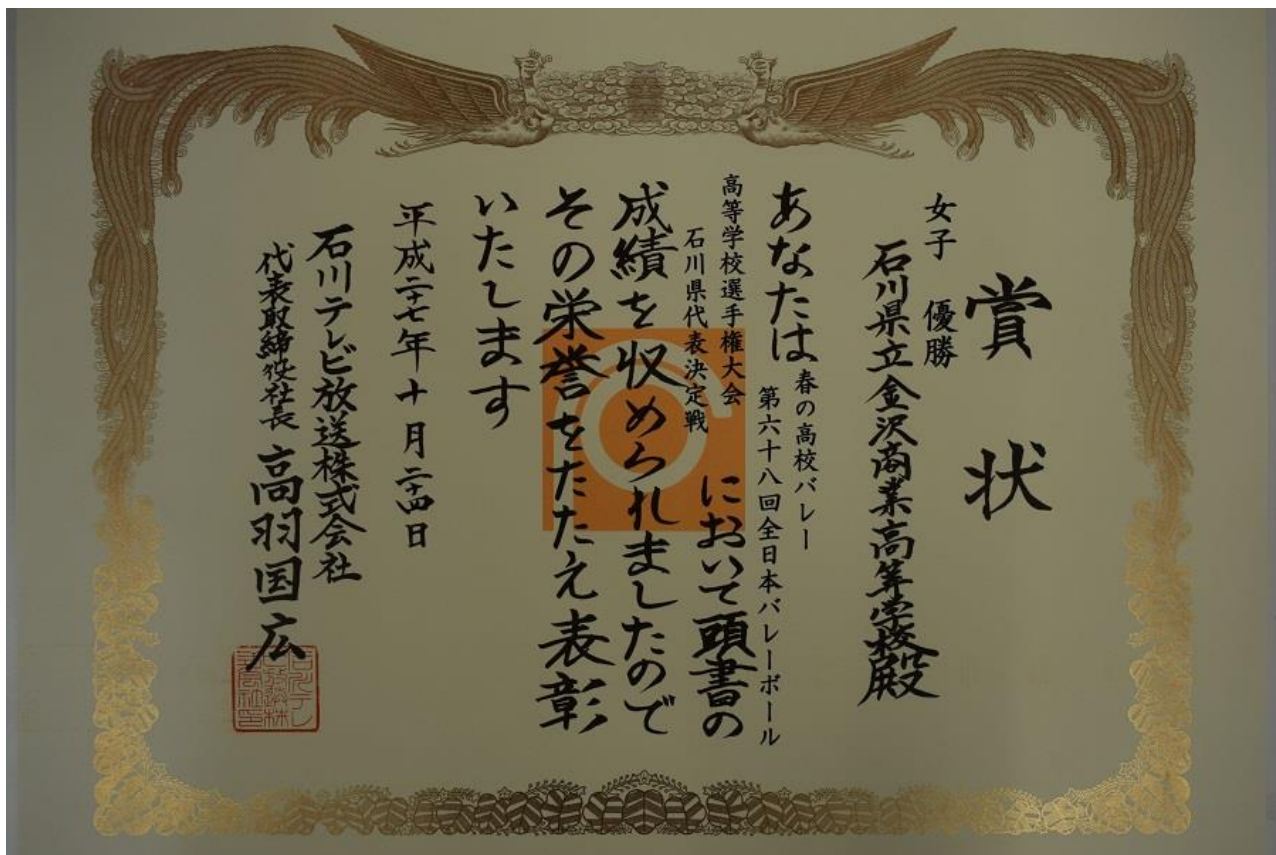 賞状
女子 優勝
石川県立金沢商業高等学校殿
あなたは春の高校バレー
第六十八回全日本バレーボール
高等学校選手権大会
石川県代表決定戦
において頭書の
成績を収められましたので
その栄誉をたたえ表彰
いたします
平成二十七年十月二十四日
石川テレビ放送株式会社
代表取締役社長 高羽国広